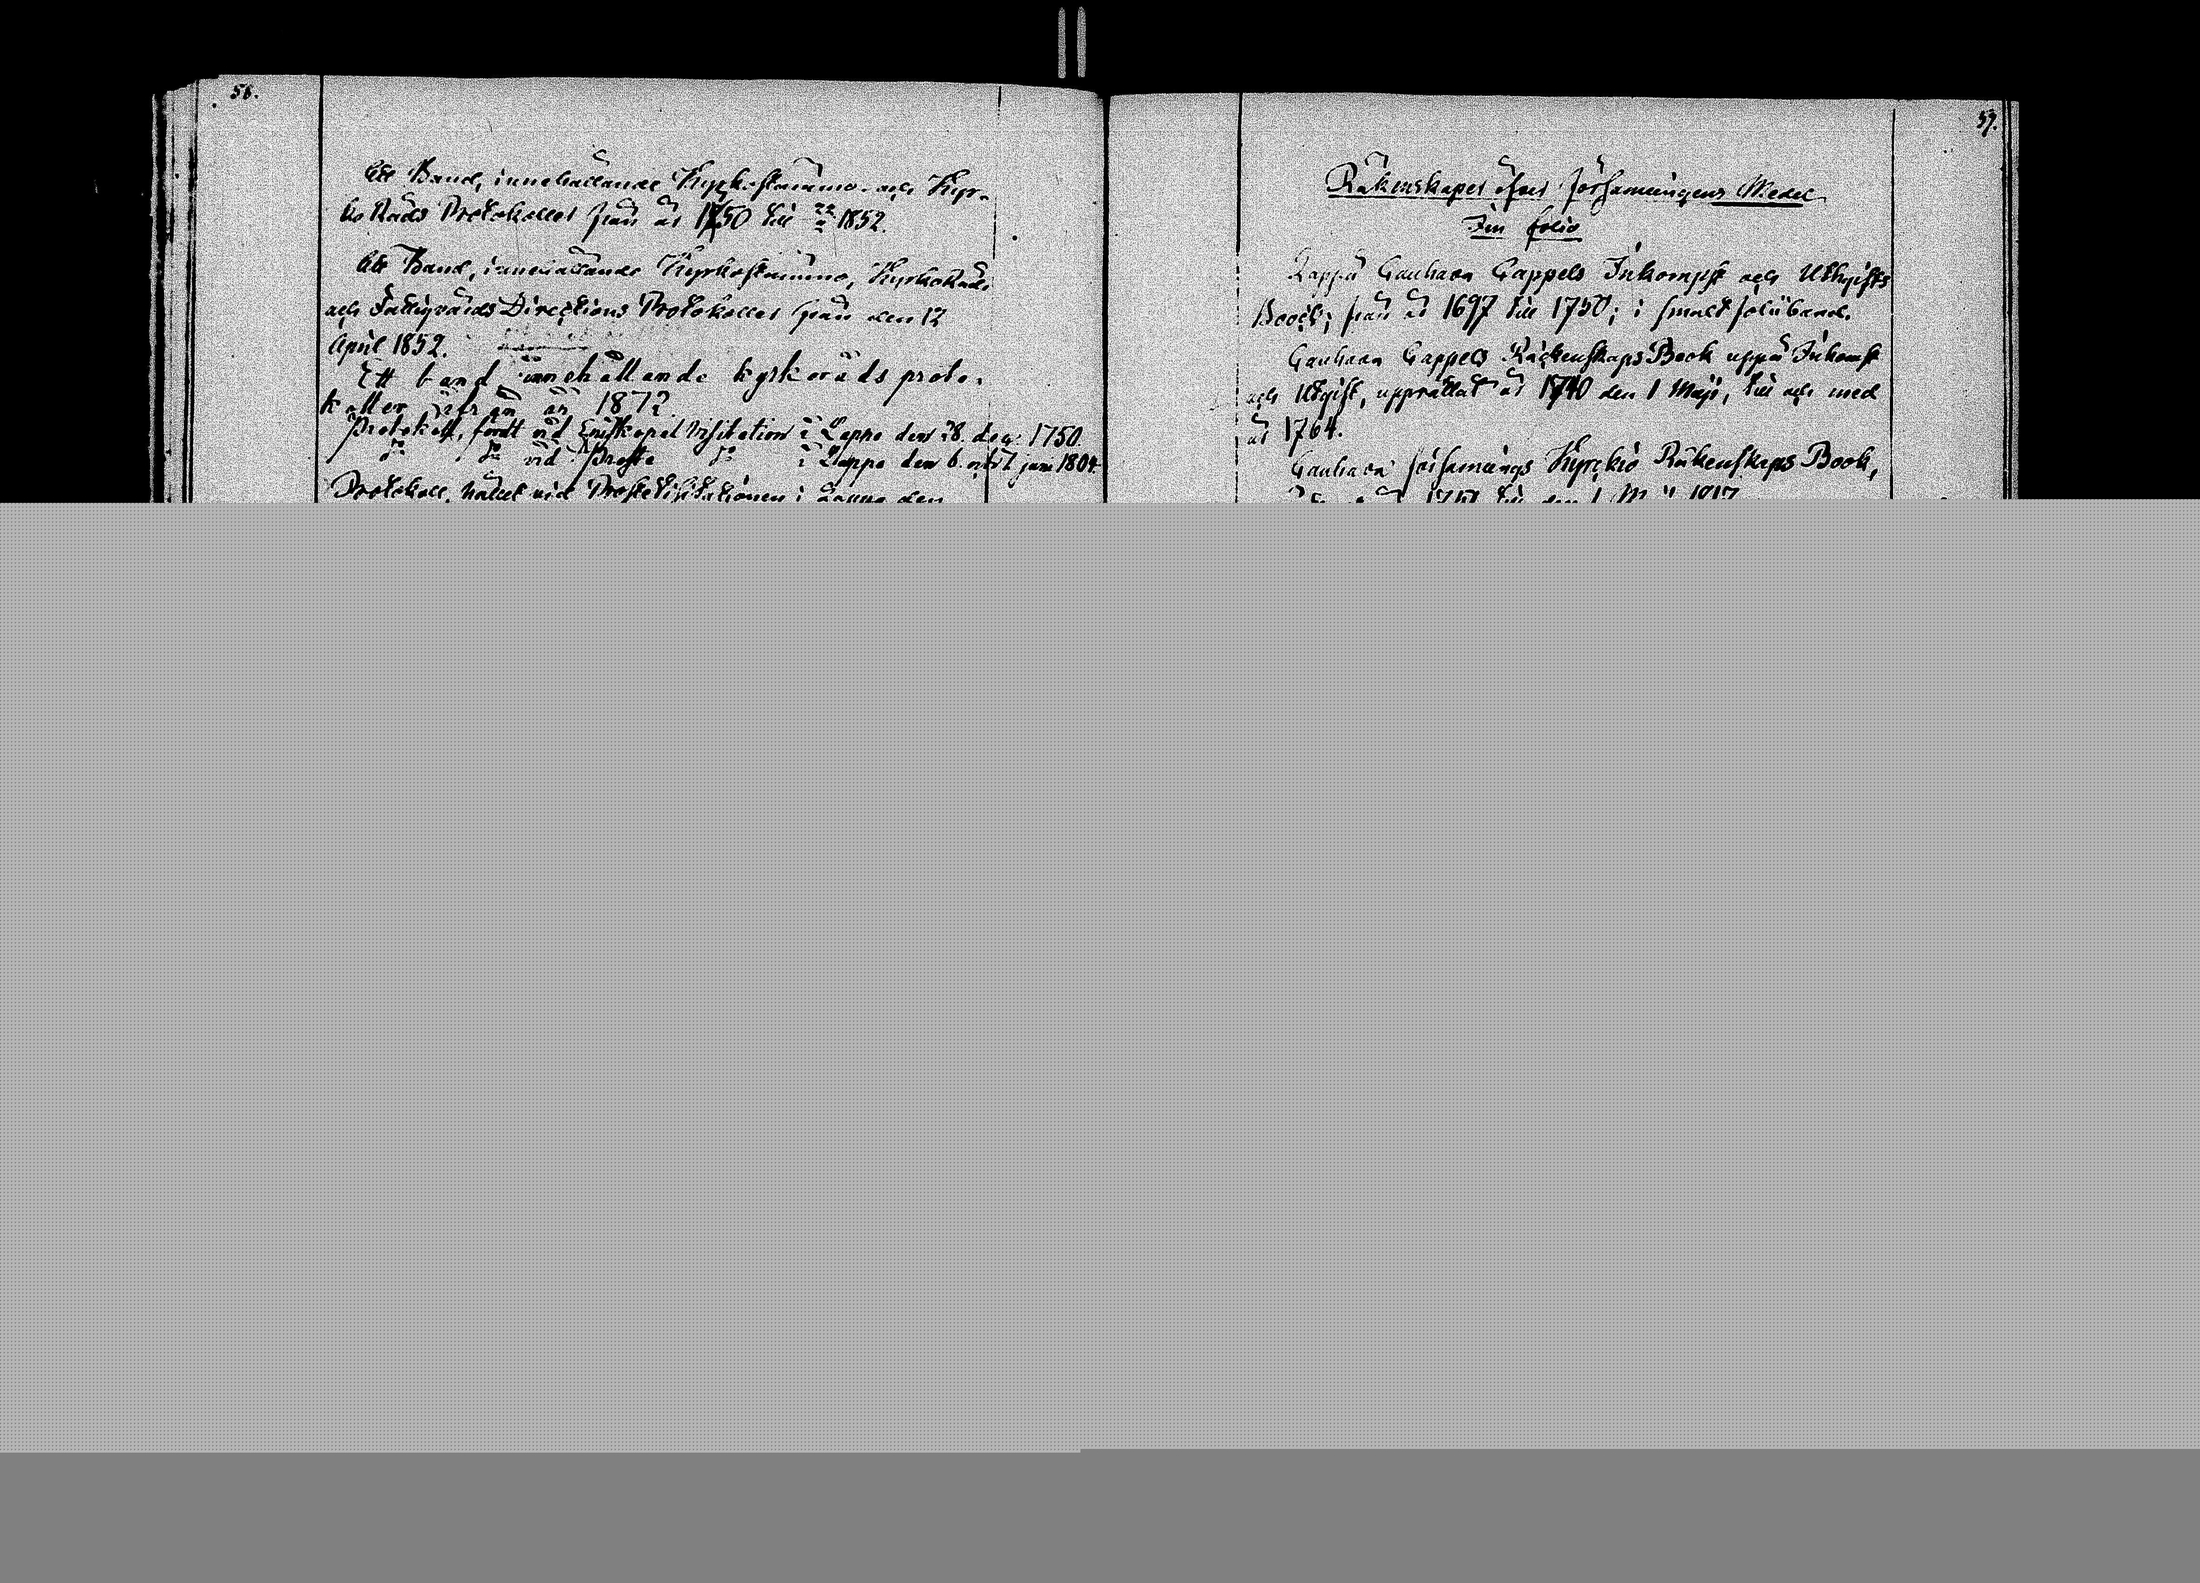 56.
Ett Band, innehållande Kyrkostämmo- och Kyr-
ko Råds Protokoller från år 1750 till 1852.
Ett Band, innehållande Kyrkostämmo, KyrkoRåds
och Fattigvårds Directions Protokoller från den 12
April 1852.
Ett band innehållande kyrkoråds proto-
koller ifrån år 1872.
Protokoll, fördt vid Episkopal Visitation i Lappo den 28. dec. 1750.
do do vid Proste do i Lappo den 6. och 7. juni 1804.
Protokoll, hållet vid ProsteVisitationen i Lappo den
57.
Räkenskaper öfver Församlingens Medel
In folio
Lappå Cauhava Cappels Inkompst och Uthgifts
Boock, från år 1697 till 1750; i smalt foliiband.
Cauhava Cappels RäckenskapsBook uppå Inkomst
och Utgift, upprättat år 1740 den 1 Maji, till och med
år 1764.
Cauhava Församlings Kyrckio Räkenskaps Book,
till den 1 Maji 1817